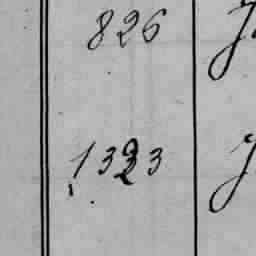 826
1323